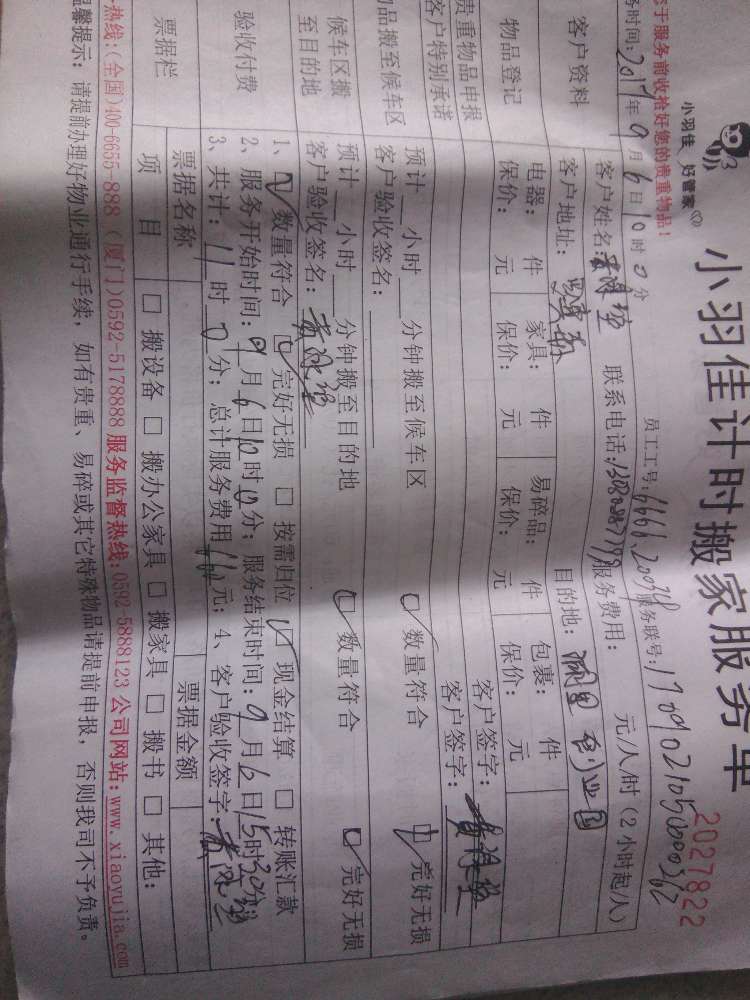 小羽佳 好管家
小羽佳计时搬家服务单
2027822
员工工号: 服务联号:
您于服务前收拾好您的贵重物品!
务时间: 2017年9月6日10时0分
客户资料 客户姓名 联系电话: 服务费用: 元/人/时(2小时起/人)
客户地址: 目的地:
物品登记 电器: 件 家具: 件 易碎品: 件 包裹: 件
保价: 元 保价: 元 保价: 元 保价: 元
贵重物品申报 客户签字:
客户特别承诺 客户签字:
物品搬至候车区 预计 小时 分钟搬至候车区 数量符合 完好无损
客户验收签名:
候车区搬至目的地 预计 小时 分钟搬至目的地 数量符合 完好无损
客户验收签名:
验收付费 1、 数量符合 完好无损 按需归位 现金结算 转账汇款
2、服务开始时间: 9月6日10时0分; 服务结束时间: 9月6日15时30分;
3、共计: 11时0分; 总计服务费用 元; 4、客户验收签字:
票据栏 票据名称 票据金额
项 目 □ 搬设备 □ 搬办公家具 □ 搬家具 □ 搬书 □ 其他:
热线:(全国)400-6655-888 (厦门)0592-5178888 服务监督热线:0592-5888123 公司网站:www.xiaoyujia.com
温馨提示: 请提前办理好物业通行手续, 如有贵重、易碎或其它特殊物品请提前申报, 否则我司不予负责。